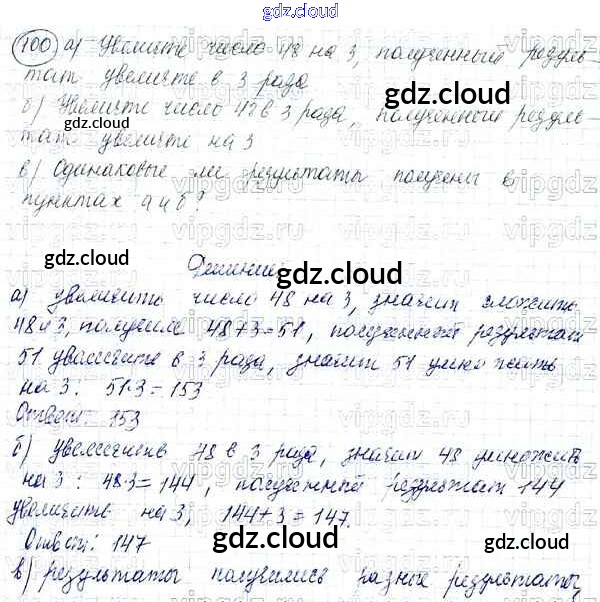 gdz.cloud
100 а) Увеличьте число 48 на 3, полученный резуль-
тат увеличьте в 3 раза
б) Увеличти число 48 в 3 раза, полученный резуль-
тат увеличте на 3
в) Одинаковые ли результаты получены в
пунктах а и б?
Решение
а) увеличить число 48 на 3, значит сложить
48 и 3, получим 48+3=51, полученный результат
51 увеличите в 3 раза, значит 51 умножить
на 3: 51·3=153
Ответ: 153
б) увеличение 48 в 3 раза, значит 48 умножить
на 3: 48·3=144, полученный результат 144
увеличить на 3, 144+3=147.
Ответ: 147
в) результаты получились разные результаты,